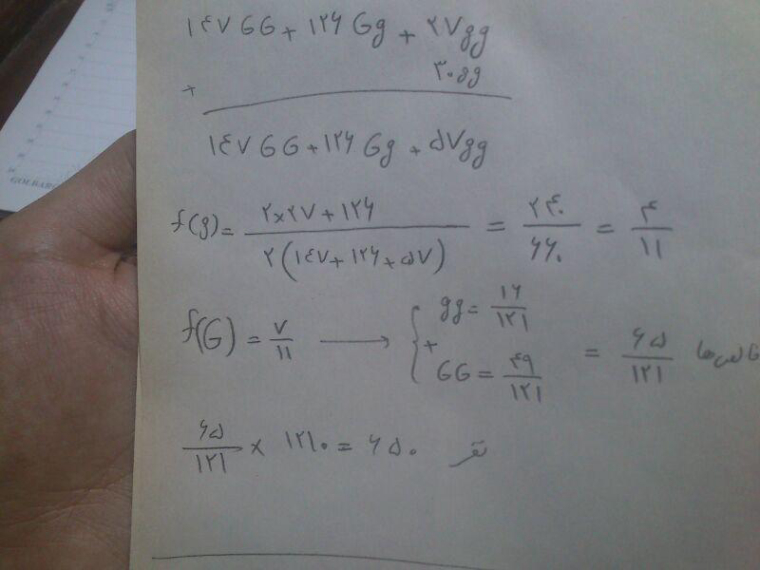 ۱۴۷ GG + ۱۲۶ Gg + ۲۷gg
۳۰gg
+
۱۴۷ GG + ۱۲۶ Gg + ۵۷gg
f(g) = (۲×۲۷+۱۲۶) / ۲(۱۴۷+۱۲۶+۵۷) = ۲۴۰/۶۶۰ = ۴/۱۱
f(G) = ۷/۱۱ → { gg = ۱۶/۱۲۱ + GG = ۴۹/۱۲۱ = ۶۵/۱۲۱ خالص‌ها
۶۵/۱۲۱ × ۱۲۱۰ = ۶۵۰ نفر